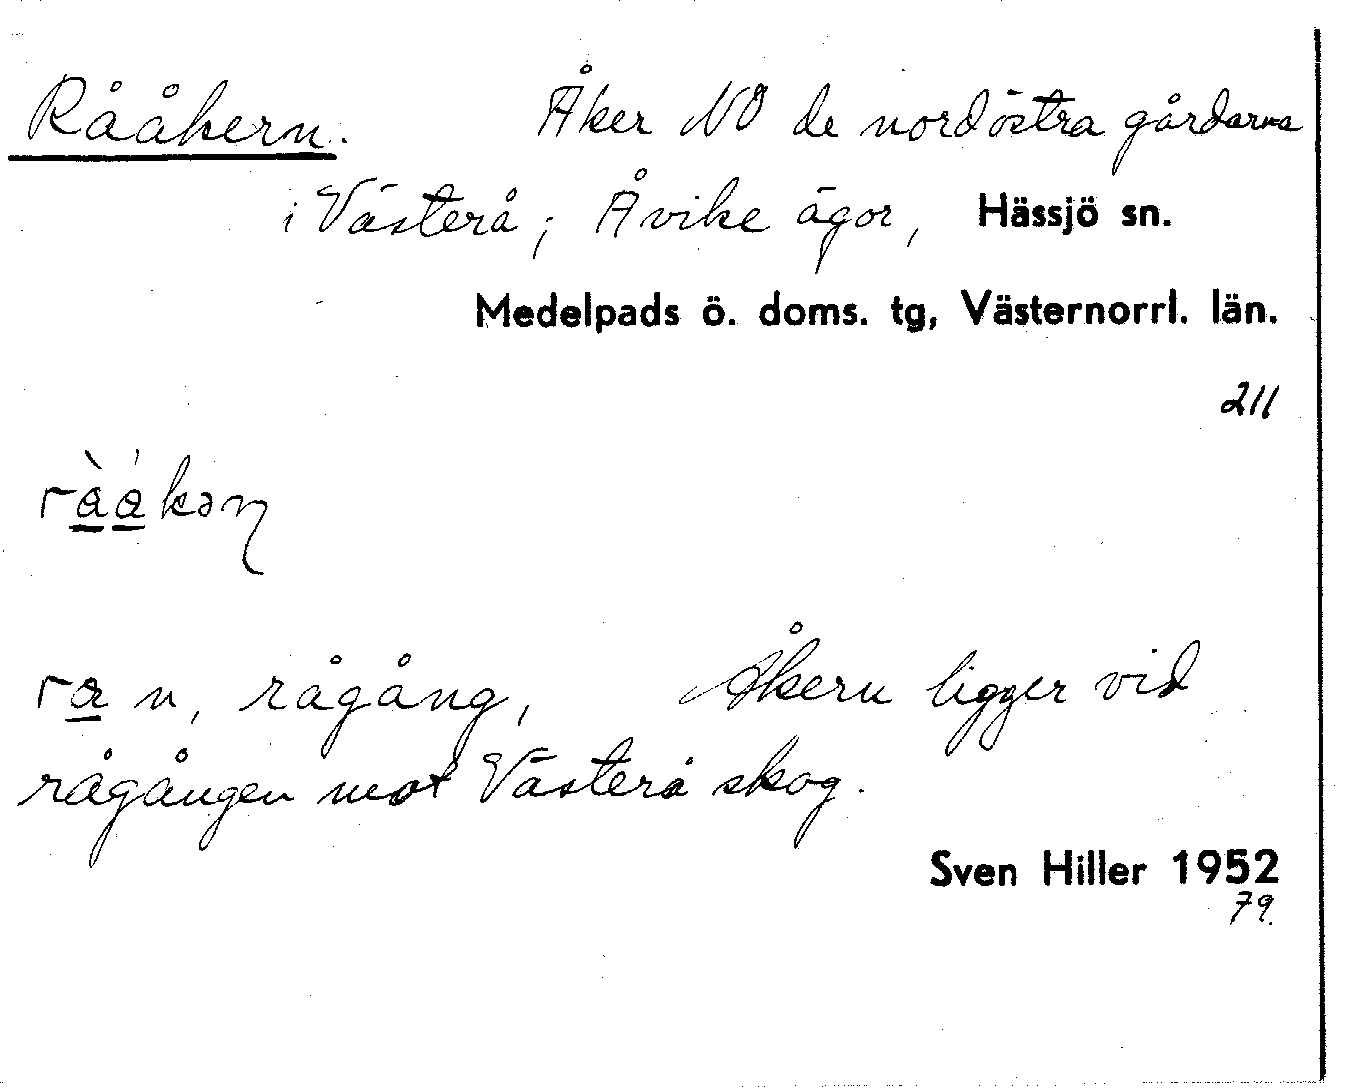 Rååkern. Åker NÖ de nordöstra gårdarna
i Västerå; Åvike ägor, Hässjö sn.
Medelpads ö. doms. tg, Västernorrl. län.
211
rå, rågång, Åkern ligger vid
rågången mot Västerå skog.
Sven Hiller 1952
79.